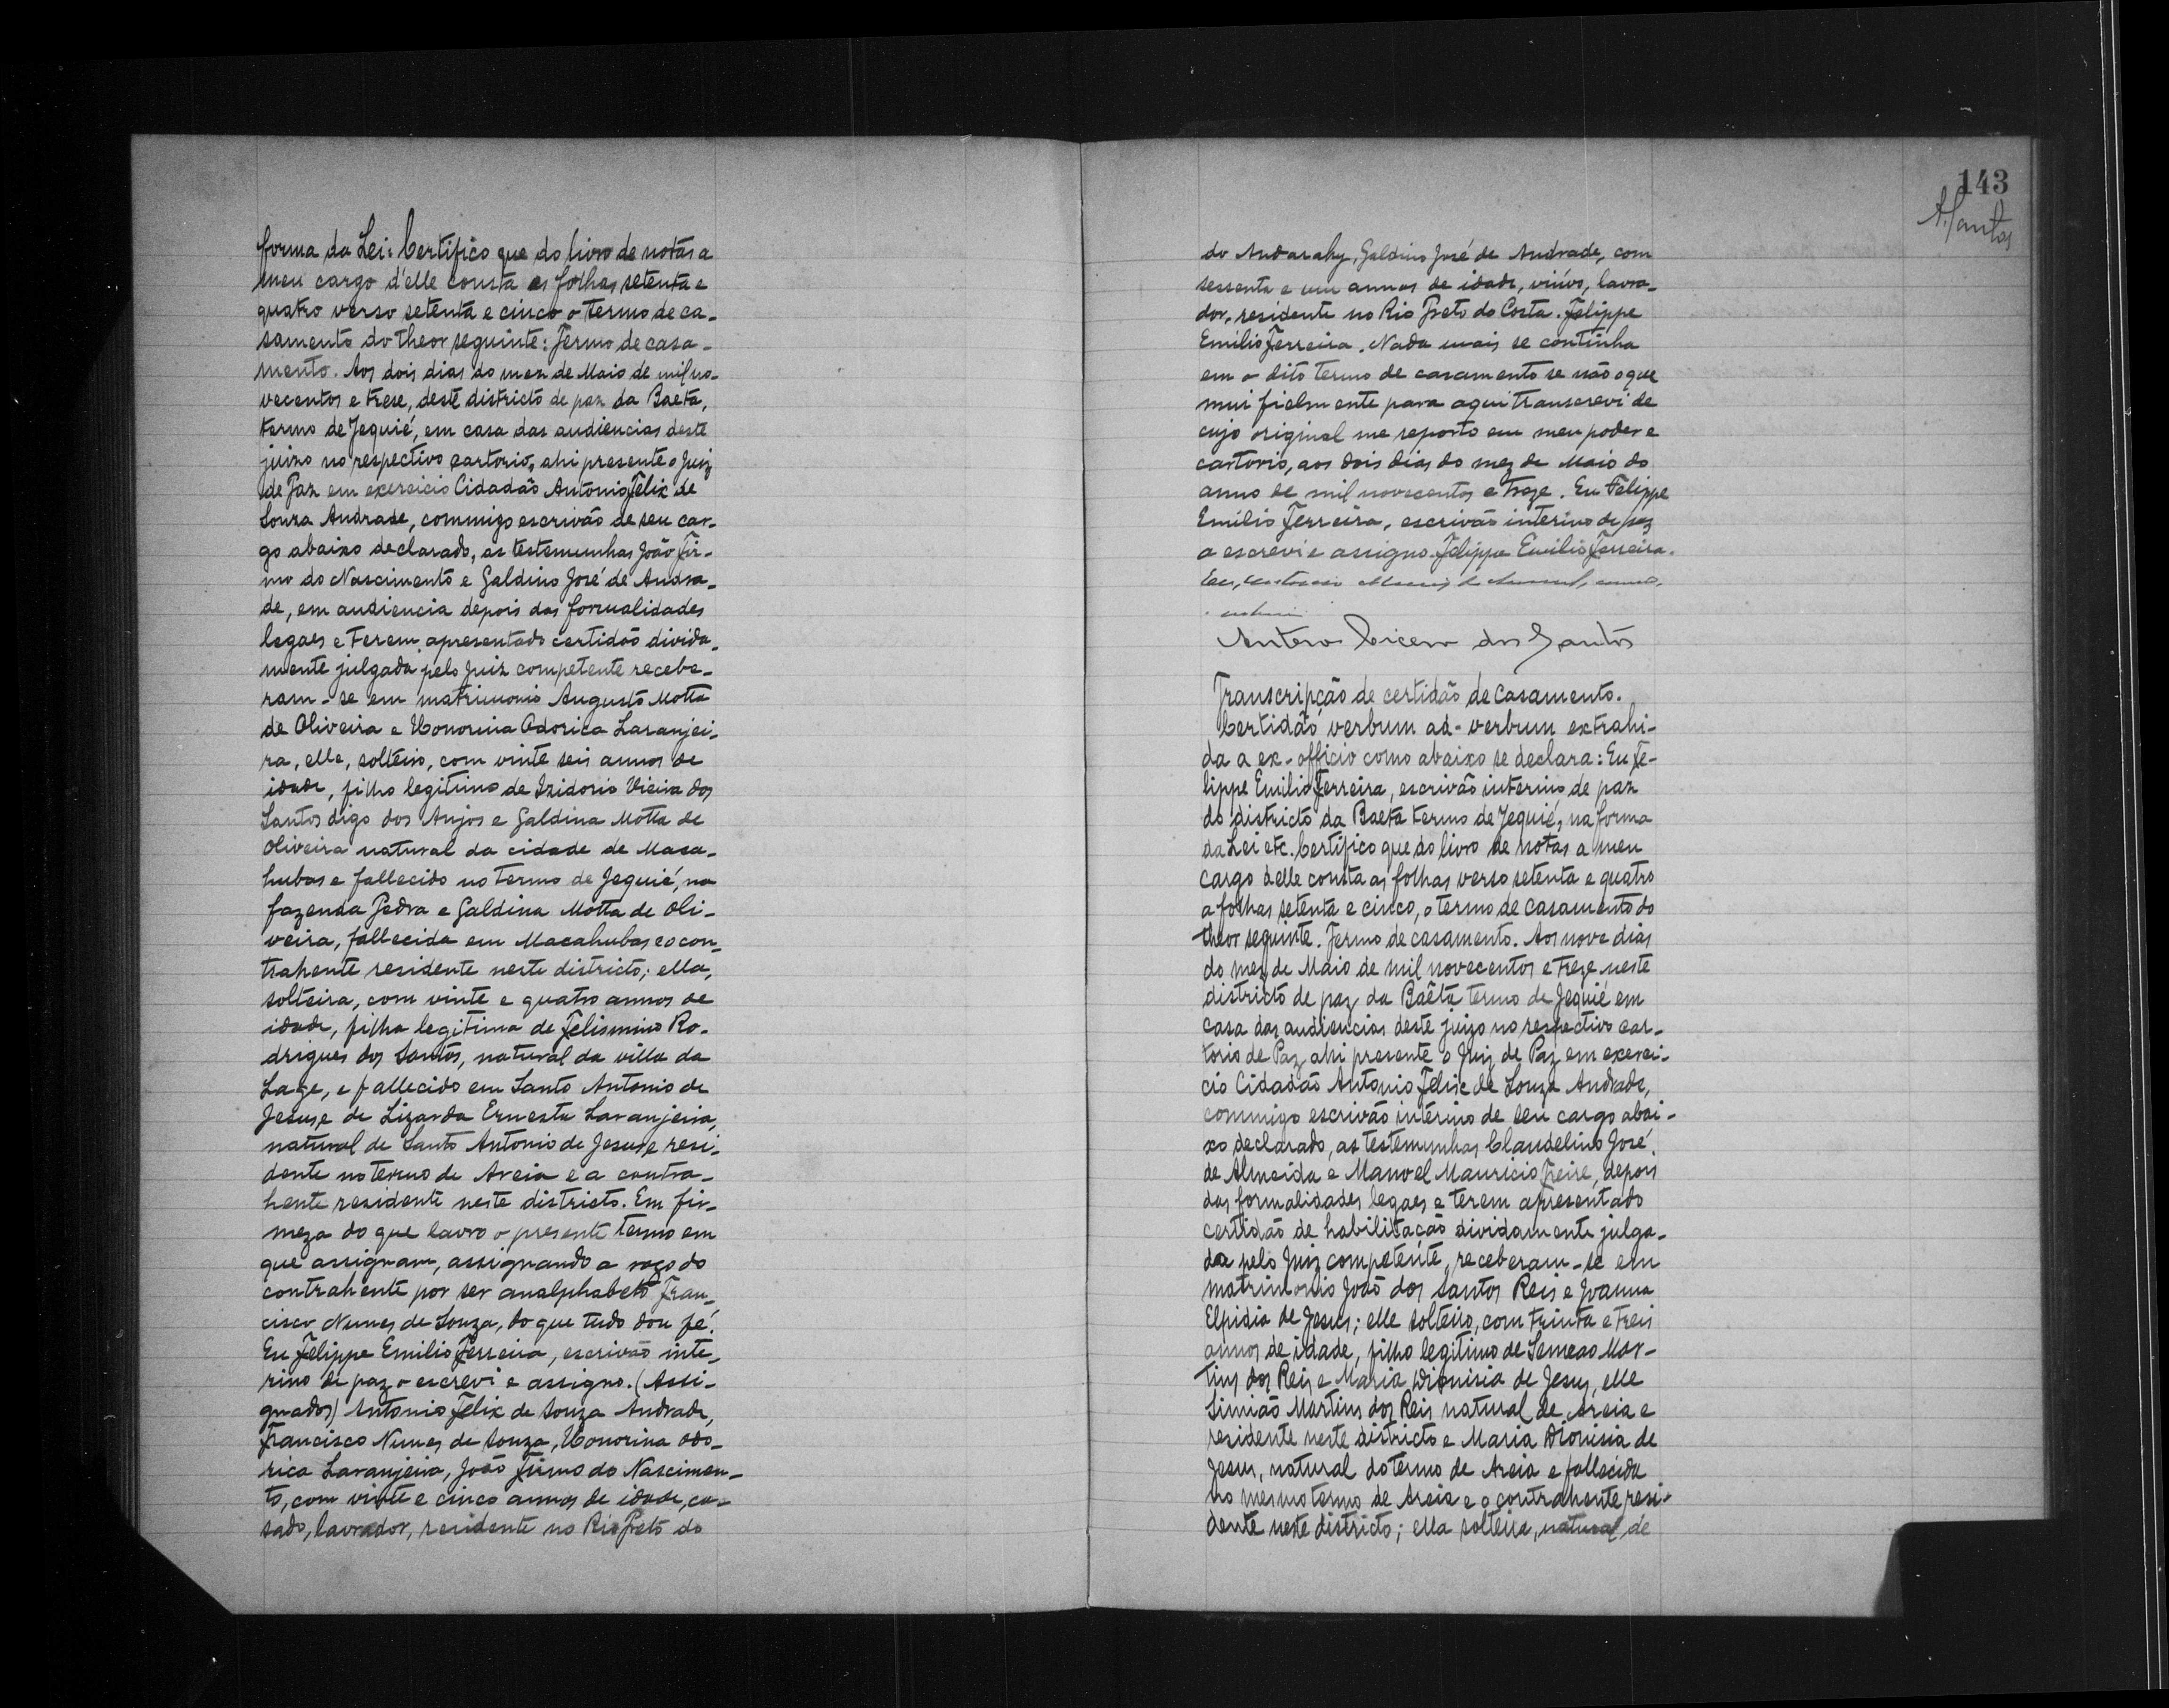 forma da Lei: Certifico que do livro de notas a
meu cargo d'elle consta as folhas setenta e
quatro verso setenta e cinco o termo de ca-
samento do theor seguinte: Termo de casa-
mento. Aos dois dias do mez de Maio de mil no-
vecentos e trese, deste districto de paz da Baeta,
termo de Jequié, em casa das audiencias deste
juizo no respectivo cartorio, ahi presente o Juiz
de Paz em exercicio Cidadão Antonio Felix de
Souza Andrade, commigo escrivão de seu car-
go abaixo declarado, as testemunhas João Fir-
mo do Nascimento e Galdino José de Andra-
de, em audiencia depois das formalidades
legaes e terem apresentado certidão divida-
mente julgada pelo Juiz competente recebe-
ram-se em matrimonio Augusto Motta
de Oliveira e Honorina Odorica Laranjei-
ra, elle, solteiro, com vinte seis annos de
idade, filho legitimo de Izidorio Vieira dos
Santos digo dos Anjos e Galdina Motta de
Oliveira natural da cidade de Maca-
hubas e fallecido no termo de Jequié, na
fazenda Pedra e Galdina Motta de Oli-
veira, fallecida em Macahubas e o con-
trahente residente neste districto; ella,
solteira, com vinte e quatro annos de
idade, filha legitima de Felismino Ro-
drigues dos Santos, natural da villa da
Lage, e fallecido em Santo Antonio de
Jesus, e de Lizarda Ernesta Laranjeira,
natural de Santo Antonio de Jesus, e resi-
dente no termo de Areia e a contra-
hente residente neste districto. Em fir-
meza do que lavro o presente termo em
que assignam, assignando a rogo do
contrahente por ser analphabeto Fran-
cisco Nunes de Souza, do que tudo dou fé.
Eu Felippe Emilio Ferreira, escrivão inte-
rino de paz o escrevi e assigno. (Assi-
gnados) Antonio Felix de Souza Andrade,
Francisco Nunes de Souza, Honorina Odo-
rica Laranjeira, João Firmo do Nascimen-
to, com vinte e cinco annos de idade, ca-
sado, lavrador, residente no Rio Preto do
143
A. Santos
do Andarahy, Galdino José de Andrade, com
sessenta e um annos de idade, viúvo, lavra-
dor, residente no Rio Preto do Costa. Felippe
Emilio Ferreira. Nada mais se continha
em o dito termo de casamento se não o que
mui fielmente para aqui transcrevi de
cujo original me reporto em meu poder e
cartorio, aos dois dias do mez de Maio do
anno de mil novecentos e treze. Eu Felippe
Emilio Ferreira, escrivão interino de paz
a escrevi e assigno. Felippe Emilio Ferreira.
Eu,
Antero Cicero dos Santos
Transcripção de certidão de Casamento.
Certidão verbum ad-verbum extrahi-
da a ex-officio como abaixo se declara: Eu Fe-
lippe Emilio Ferreira, escrivão interino de paz
do districto da Baeta termo de Jequié, na forma
da Lei etc. Certifico que do livro de notas a meu
cargo delle consta as folhas verso setenta e quatro
a folhas setenta e cinco, o termo de casamento do
theor seguinte. Termo de casamento. Aos nove dias
do mez de Maio de mil novecentos e treze neste
districto de paz da Baêta termo de Jequié em
casa das audiencias deste juizo no respectivo car-
torio de Paz ahi presente o Juiz de Paz em exerci-
cio Cidadão Antonio Felix de Souza Andrade,
commigo escrivão interino de seu cargo abai-
xo declarado, as testemunhas Claudelino José
de Almeida e Manoel Mauricio Freire, depois
das formalidades legaes e terem apresentado
certidão de habilitação dividamente julga-
da pelo Juiz competente, receberam-se em
matrimonio João dos Santos Reis e Joanna
Elpidia de Jesus; elle solteiro, com trinta e treis
annos de idade, filho legitimo de Semeao Mar-
tins dos Reis e Maria Dionisia de Jesus, elle
Simião Martins dos Reis natural de Areia e
residente neste districto e Maria Dionisia de
Jesus, natural do termo de Areia e fallecida
no mesmo termo de Areia e o contrahente resi-
dente neste districto; ella solteira, natural de